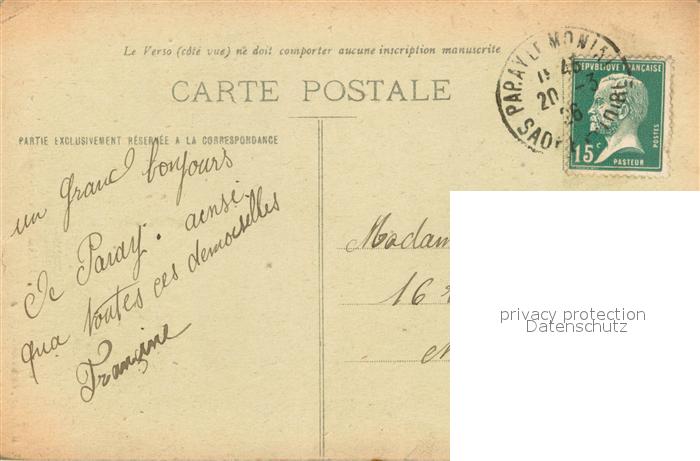 Le Verso (côté vue) ne doit comporter aucune inscription manuscrite
CARTE POSTALE
PARTIE EXCLUSIVEMENT RÉSERVÉE A LA CORRESPONDANCE
PARAY LE MONIAL
45
20 -3
26
SAONE & LOIRE
REPVBLIQVE FRANÇAISE
15c
POSTES
PASTEUR
un grand bonjours
de Paray. ainsi
qua toutes ces demoiselles
Françine
Madam
16
privacy protection
Datenschutz